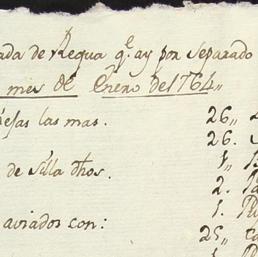 ada de Requa q.e ay por separado
mes de Enero de 1764,,
las mas. 26,,
26.
de silla dhos. 1,,
2.
1.
aviados con: 25,,